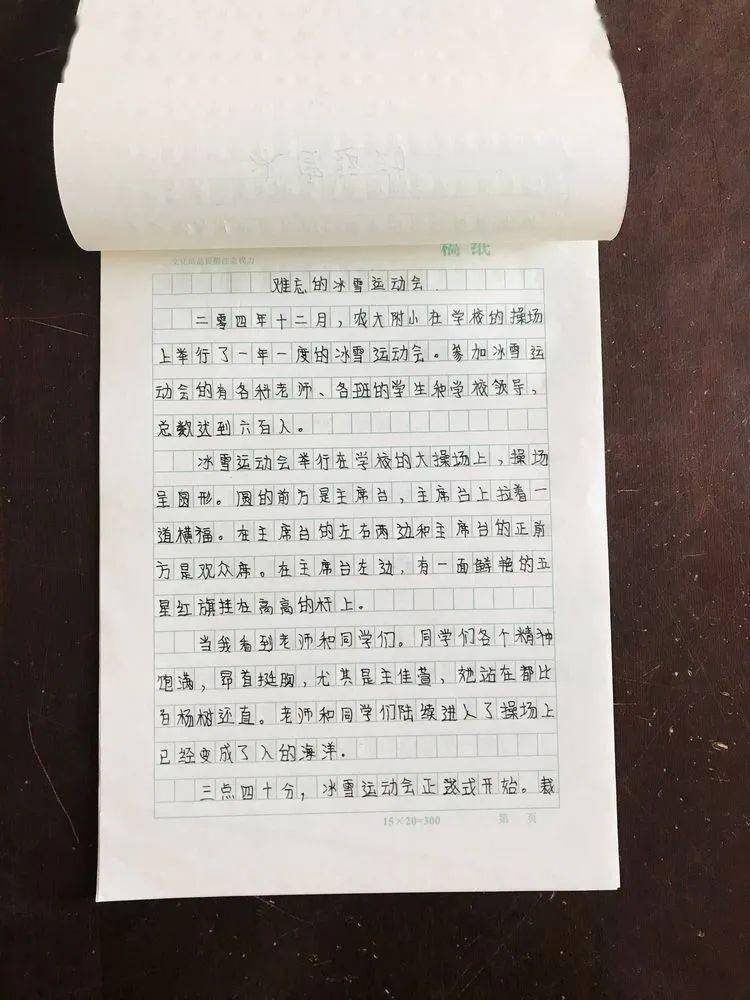 稿纸
文化用品提醒注意视力
难忘的冰雪运动会
二零四年十二月，农大附小在学校的操场
上举行了一年一度的冰雪运动会。参加冰雪运
动会的有各科老师、各班的学生和学校领导，
总数达到六百人。
冰雪运动会举行在学校的大操场上，操场
呈圆形。圆的前方是主席台，主席台上拉着一
道横福。在主席台的左右两边和主席台的正前
方是观众席。在主席台左边，有一面鲜艳的五
星红旗挂在高高的杆上。
当我看到老师和同学们。同学们各个精神
饱满，昂首挺胸，尤其是王佳萱，她站在都比
白杨树还直。老师和同学们陆续进入了操场上
已经变成了人的海洋.
三点四十分，冰雪运动会正式开始。裁
15×20=300
第 页